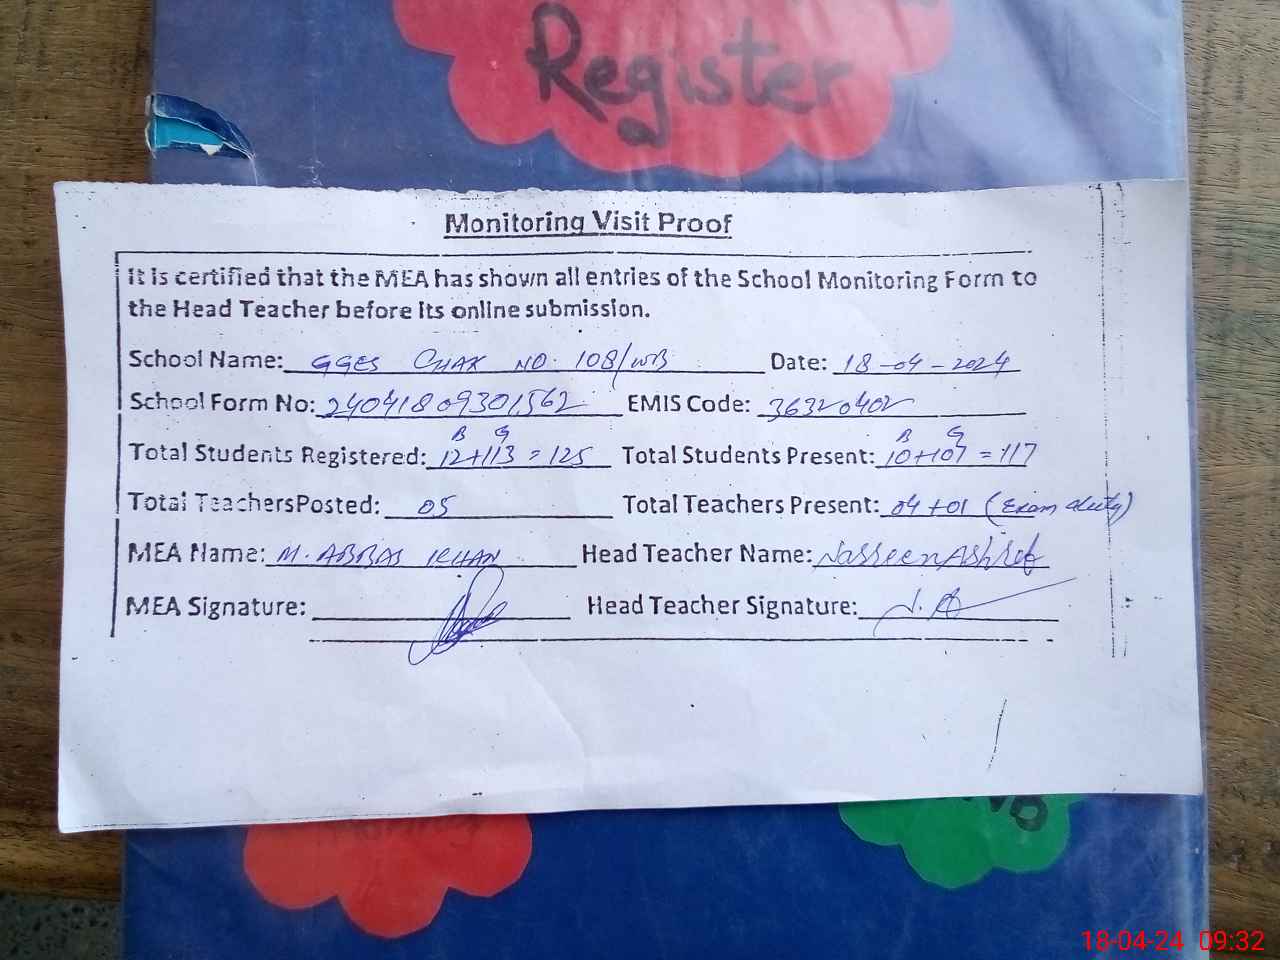 Register
Monitoring Visit Proof
It is certified that the MEA has shown all entries of the School Monitoring Form to
the Head Teacher before its online submission.
School Name: GGES CHAK NO. 108/WB Date: 18-04-2024
School Form No: 24041809301562 EMIS Code: 36320402
B G B G
Total Students Registered: 12+113 = 125 Total Students Present: 10+107 = 117
Total Teachers Posted: 05 Total Teachers Present: 04+01 (Exam duty)
MEA Name: M. ABBAS KHAN Head Teacher Name: Nasreen Ashraf
MEA Signature: Head Teacher Signature: N. A
18-04-24 09:32